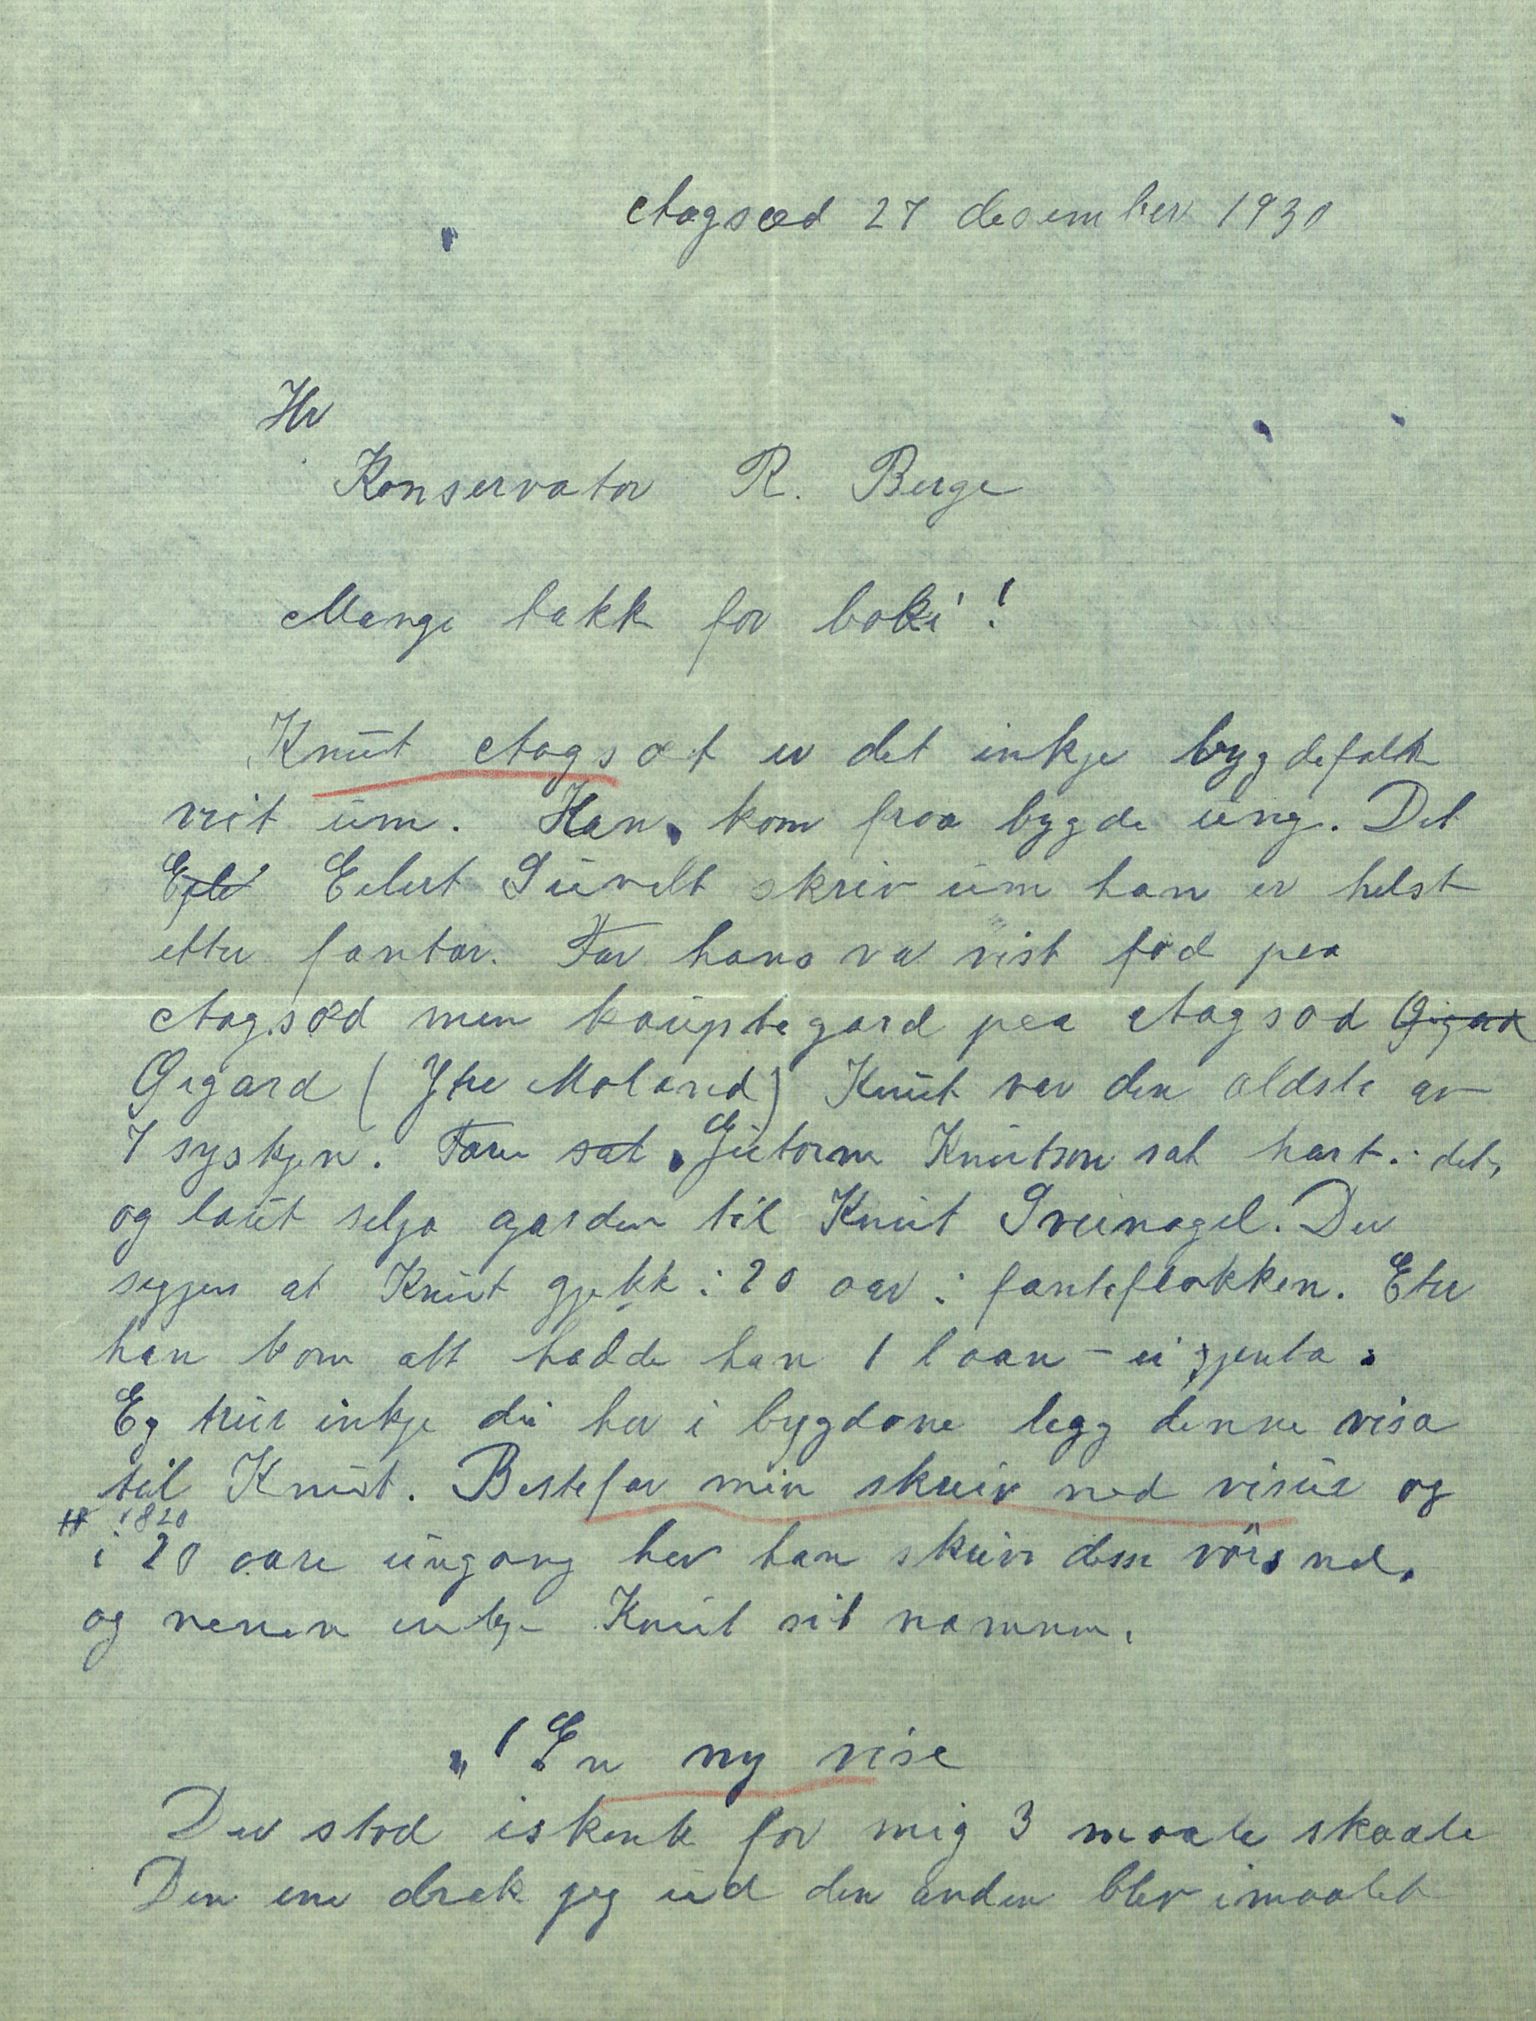 Aagsæd 27 desember 1930
Hr
Konservator R. Berge
Mange takk for boki!
Knut Aagsæt er det inkje bygdefolk
veit um. Han kom fraa bygde ung. Det
Eilert Sundt skriv um han er helst
etter fantar. Far hans va vist fød paa
Aagsæd men kaupte gard paa Aagsæd
Øigard (Ytre Moland) Knut var den eldste av
7 syskjen. Faren sat Gutorm Knutson sat hart i det,
og laut selja garden til Knut Sveinagel. Der
segjes at Knut gjekk i 20 aar i fanteflokken. Eter
han kom att hadde han 1 baan - ei gjenta.
Eg trur inkje dei her i bygdane legg denne visa
til Knut. Bestefar min skreiv ned visur og
1820
i 20 aare ungang hev han skrive desse vers ned,
og nemner inkje Knut sit namn.
"1 En ny vise
Der stod iskenkt for mig 3 maate skaale
Den ene drak jeg ud den anden blev imaalet